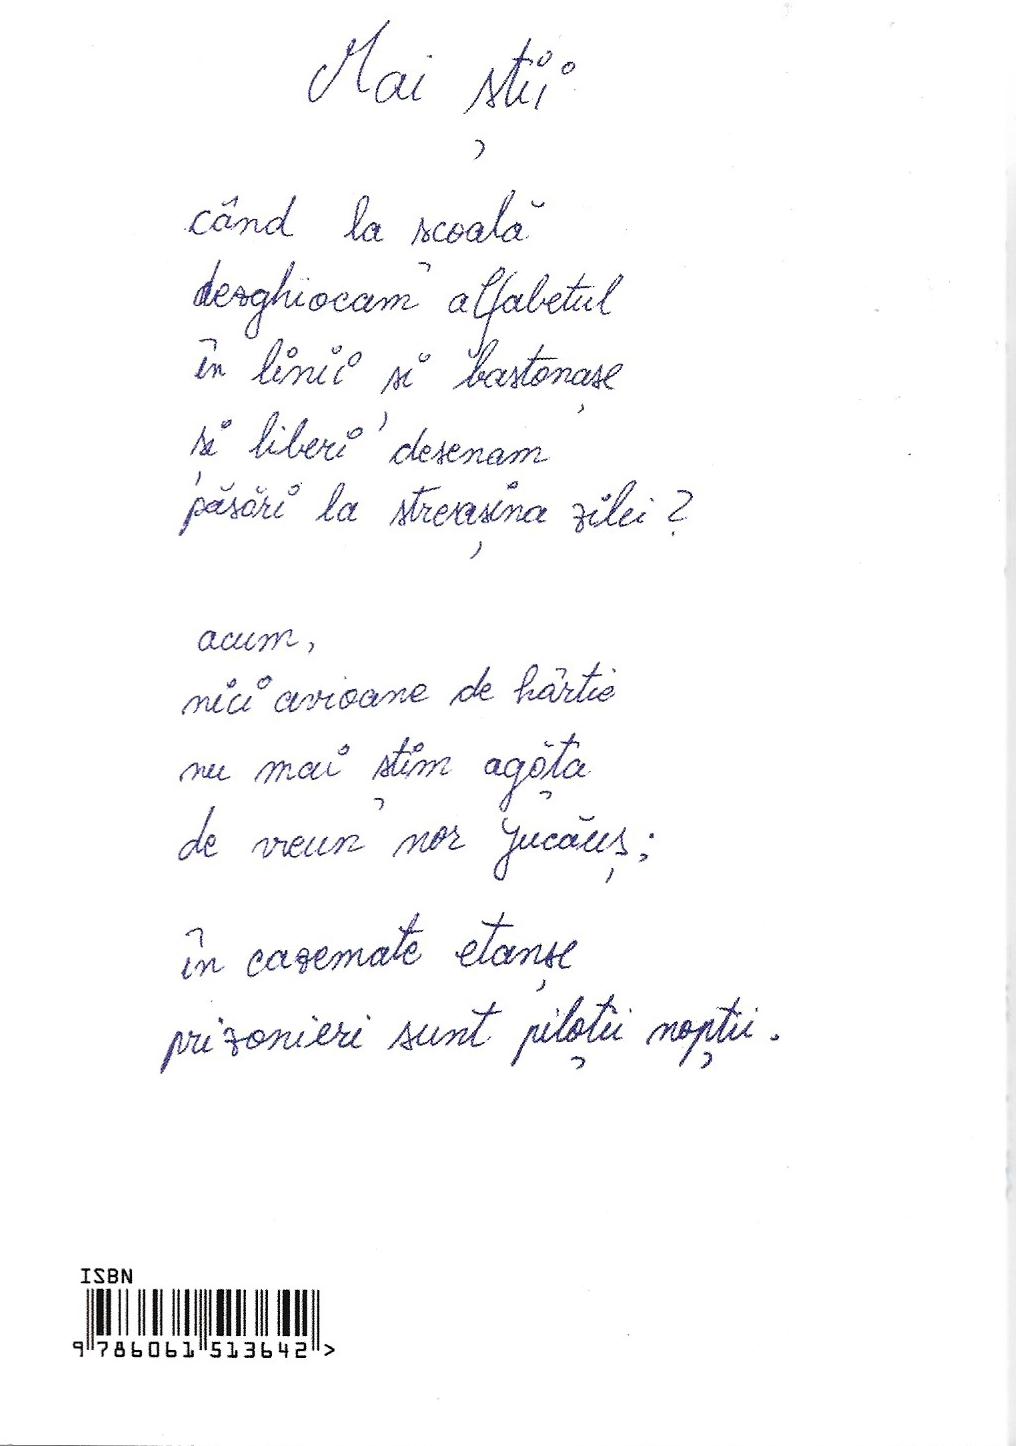 Mai știi
când la școală
dezghiocam alfabetul
în linii și bastonașe
și liberi desenam
păsări la streașina zilei?
acum,
nici avioane de hârtie
nu mai știm agăța
de vreun nor jucăuș;
în cazemate etanșe
prizonieri sunt piloții nopții.
ISBN
9 786061 513642 >